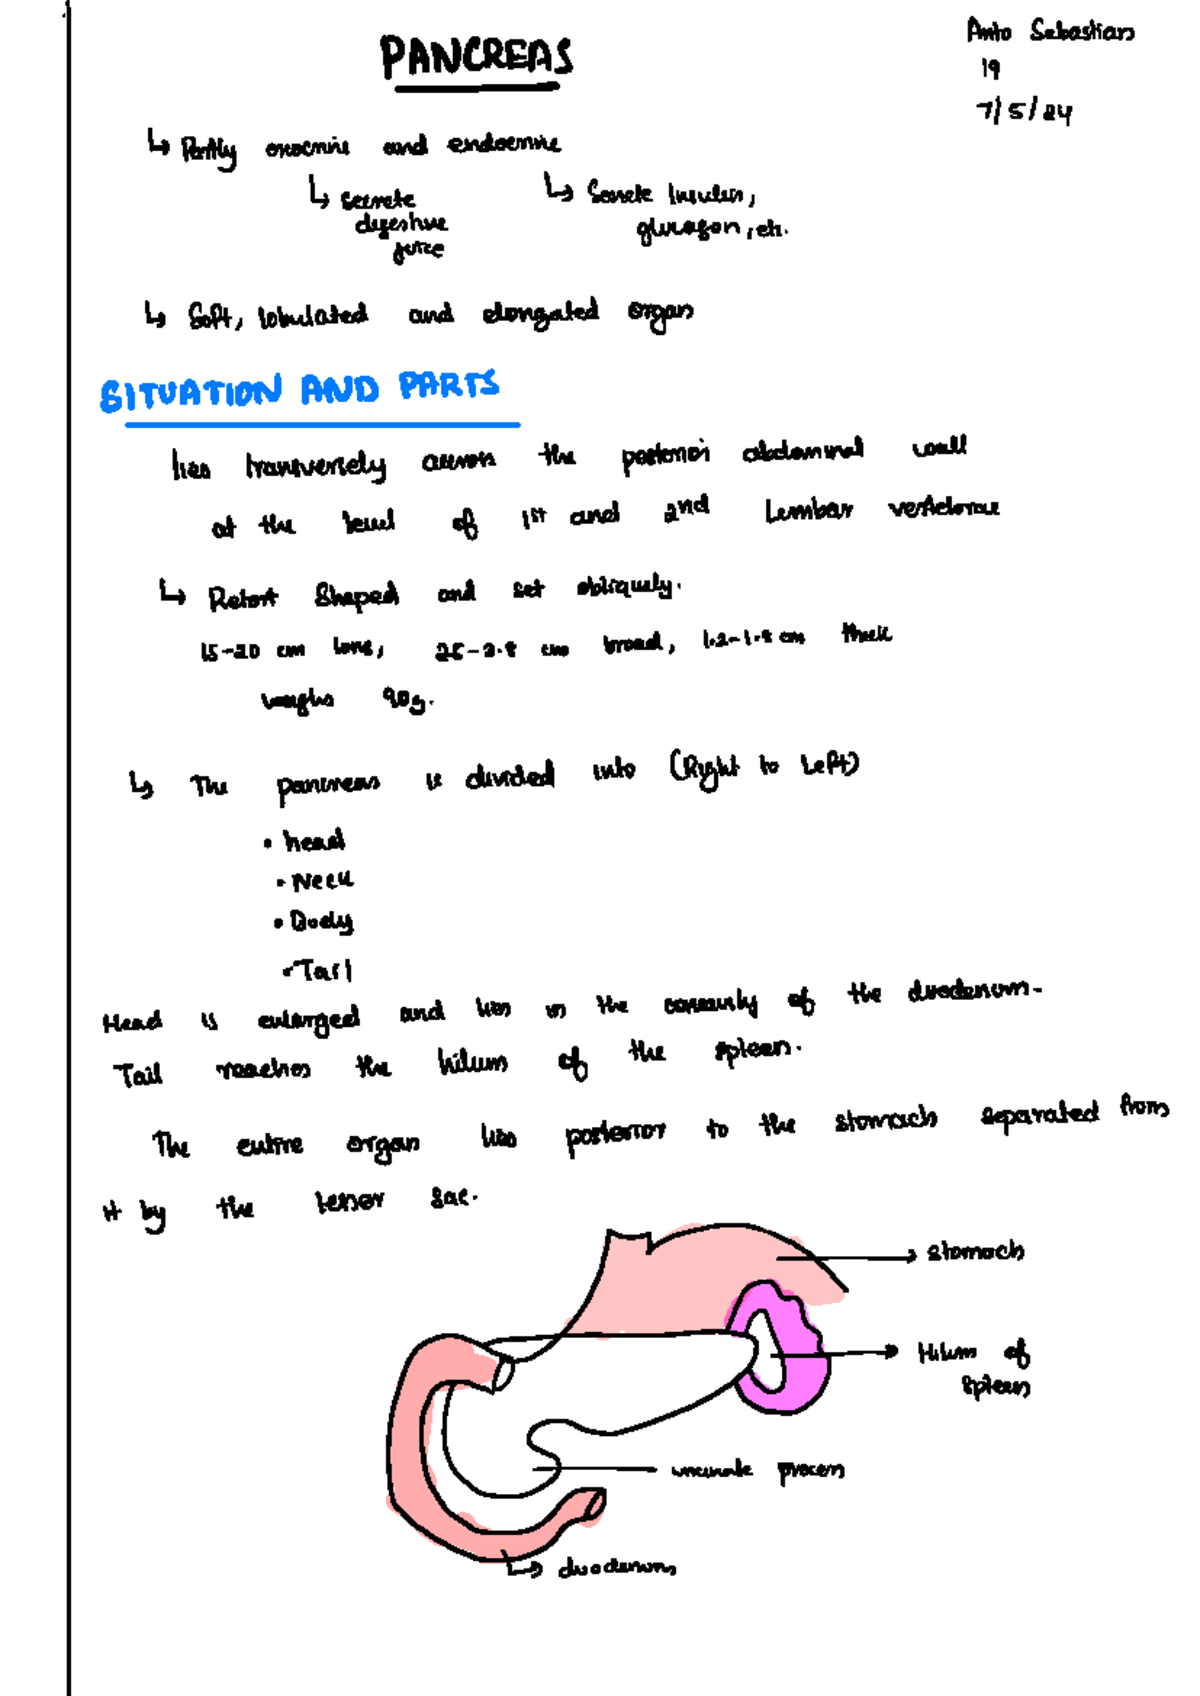 PANCREAS
Anto Sebastian
19
7/5/24
↳ Partly exocrine and endocrine
↳ Secrete digestive juice
↳ Secrete Insulin, glucagon, etc.
↳ Soft, lobulated and elongated organ
SITUATION AND PARTS
lies transversely across the posterior abdominal wall
at the level of 1st and 2nd Lumbar vertebrae
↳ Retort Shaped and set obliquely.
15-20 cm long, 25-3.8 cm broad, 1.2-1.8 cm thick
weighs 90g.
↳ The pancreas is divided into (Right to Left)
• head
• Neck
• Body
• Tail
Head is enlarged and lies in the concavity of the duodenum.
Tail reaches the hilum of the spleen.
The entire organ lies posterior to the stomach separated from
it by the lesser sac.
stomach
Hilum of
spleen
uncinate process
↳ duodenum